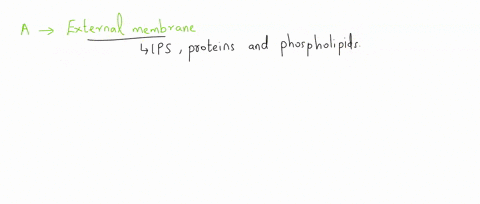 A → External membrane
↳ LPS, proteins and phospholipids.